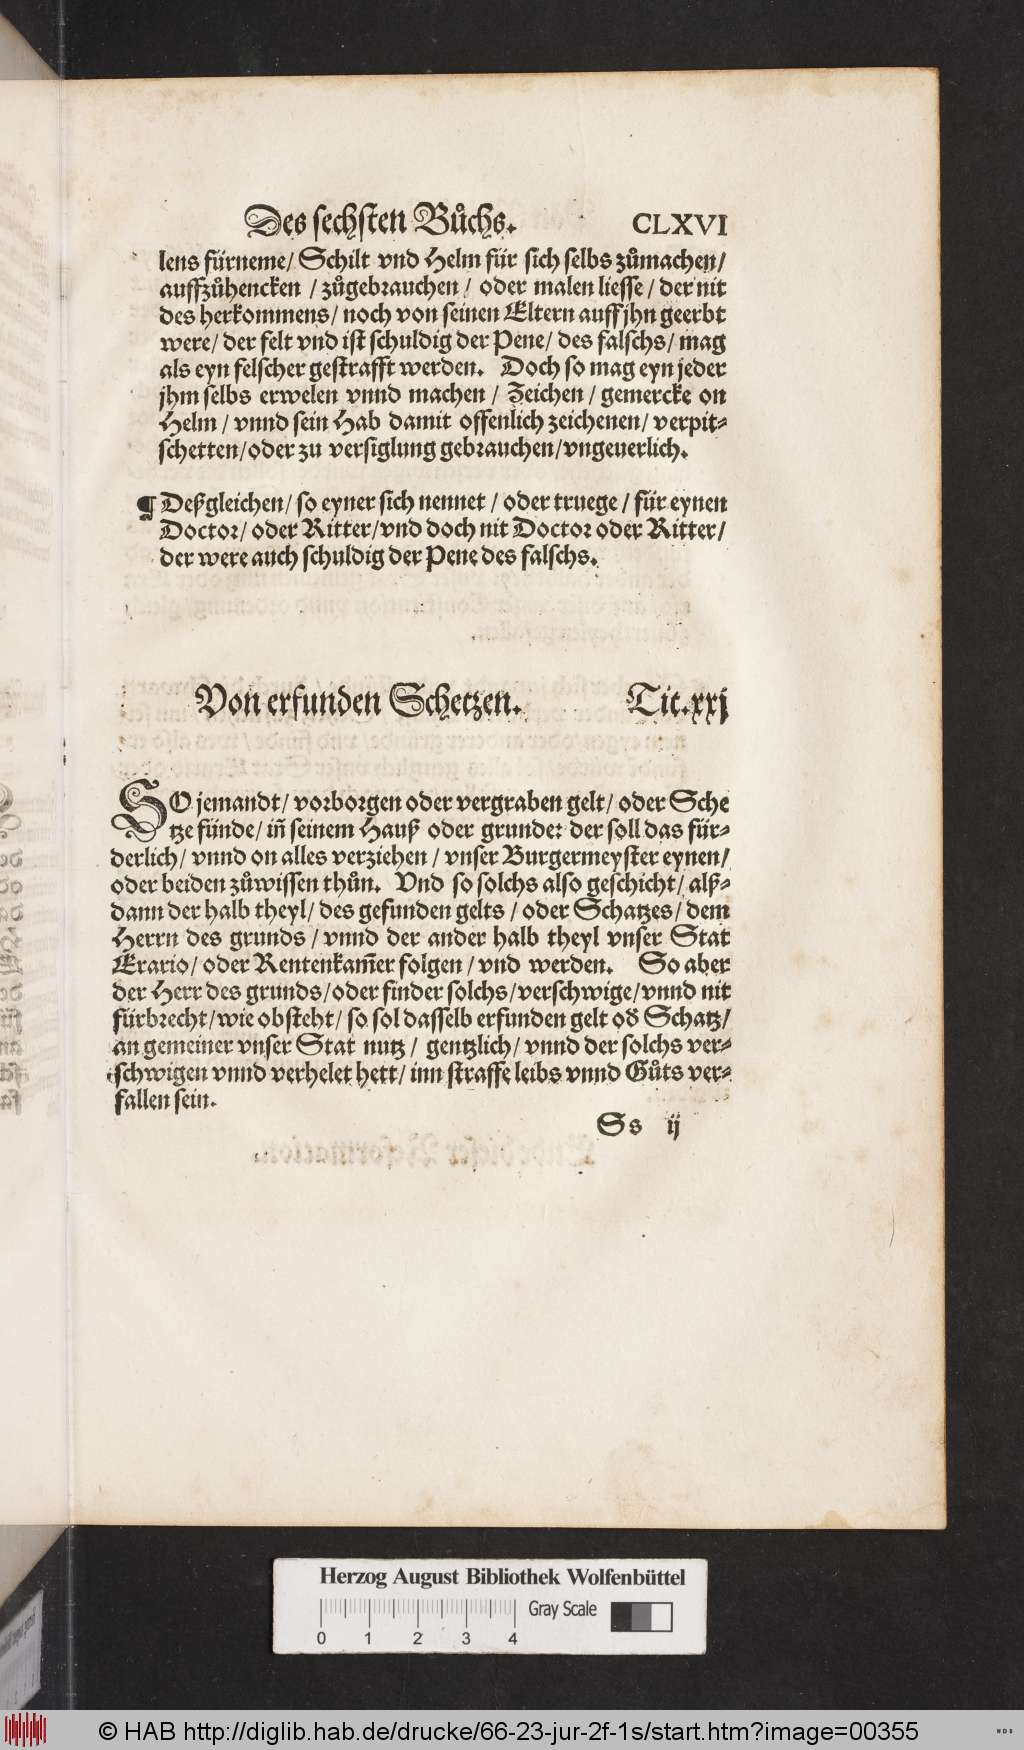 Des sechsten Bůchs. CLXVI
lens fürneme/ Schilt vnd Helm für sich selbs zůmachen/
auffzůhencken / zůgebrauchen / oder malen liesse / der nit
des herkommens/ noch von seinen Eltern auff jhn geerbt
were/ der felt vnd ist schuldig der Pene/ des falschs/ mag
als eyn felscher gestrafft werden. Doch so mag eyn jeder
jhm selbs erwelen vnnd machen / Zeichen / gemercke on
Helm / vnnd sein Hab damit offenlich zeichenen/ verpit-
schetten/oder zu versiglung gebrauchen/vngeuerlich.
¶ Deßgleichen/ so eyner sich nennet / oder truege / für eynen
Doctor/ oder Ritter/vnd doch nit Doctor oder Ritter/
der were auch schuldig der Pene des falschs.
Von erfunden Schetzen. Tit.xxj
SO jemandt/ vorborgen oder vergraben gelt/ oder Sche
tze fünde/ iñ seinem Hauß oder grunde: der soll das für-
derlich/ vnnd on alles verziehen / vnser Burgermeyster eynen/
oder beiden zůwissen thůn. Vnd so solchs also geschicht/ alß-
dann der halb theyl/ des gefunden gelts / oder Schatzes/ dem
Herrn des grunds / vnnd der ander halb theyl vnser Stat
Erario/ oder Rentenkam̃er folgen / vnd werden. So aber
der Herr des grunds/oder finder solchs/verschwige/vnnd nit
fürbrecht/wie obsteht/ so sol dasselb erfunden gelt oď Schatz/
an gemeiner vnser Stat nutz / gentzlich/ vnnd der solchs ver-
schwigen vnnd verhelet hett/ inn straffe leibs vnnd Gůts ver-
fallen sein.
Ss ij
Herzog August Bibliothek Wolfenbüttel
Gray Scale
0 1 2 3 4
© HAB http://diglib.hab.de/drucke/66-23-jur-2f-1s/start.htm?image=00355